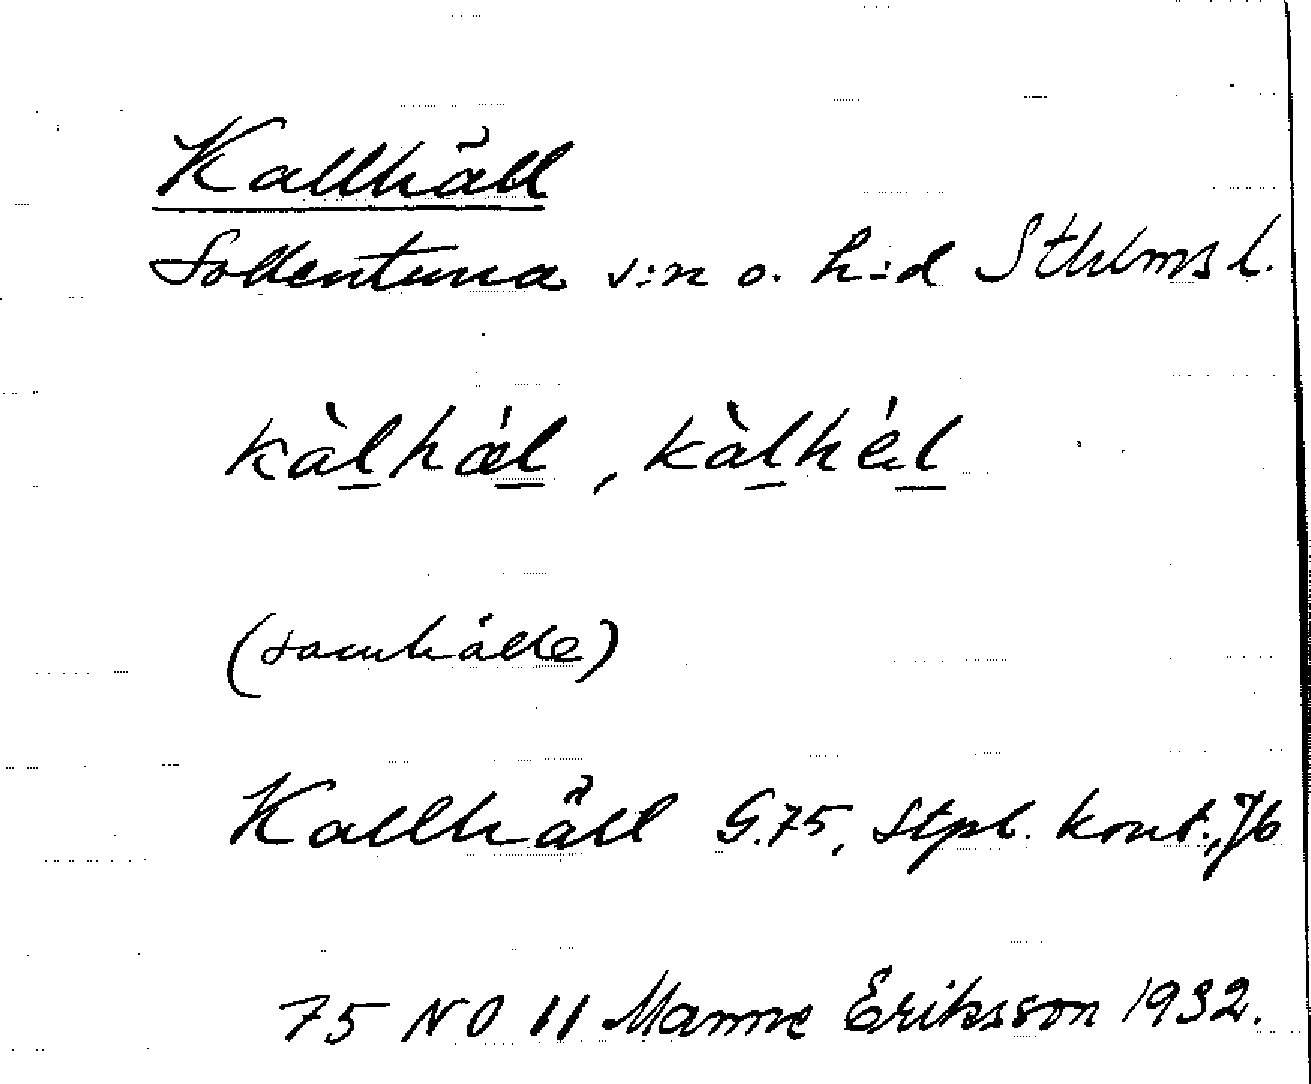 Kallhäll
Sollentuna s:n o. h:d Sthlms l.
kàl̲hǽl̲, kàl̲hél̲
(samhälle)
Kallhäll G.75, Stpl. kont., Jb
75 NO 11 Manne Eriksson 1932.